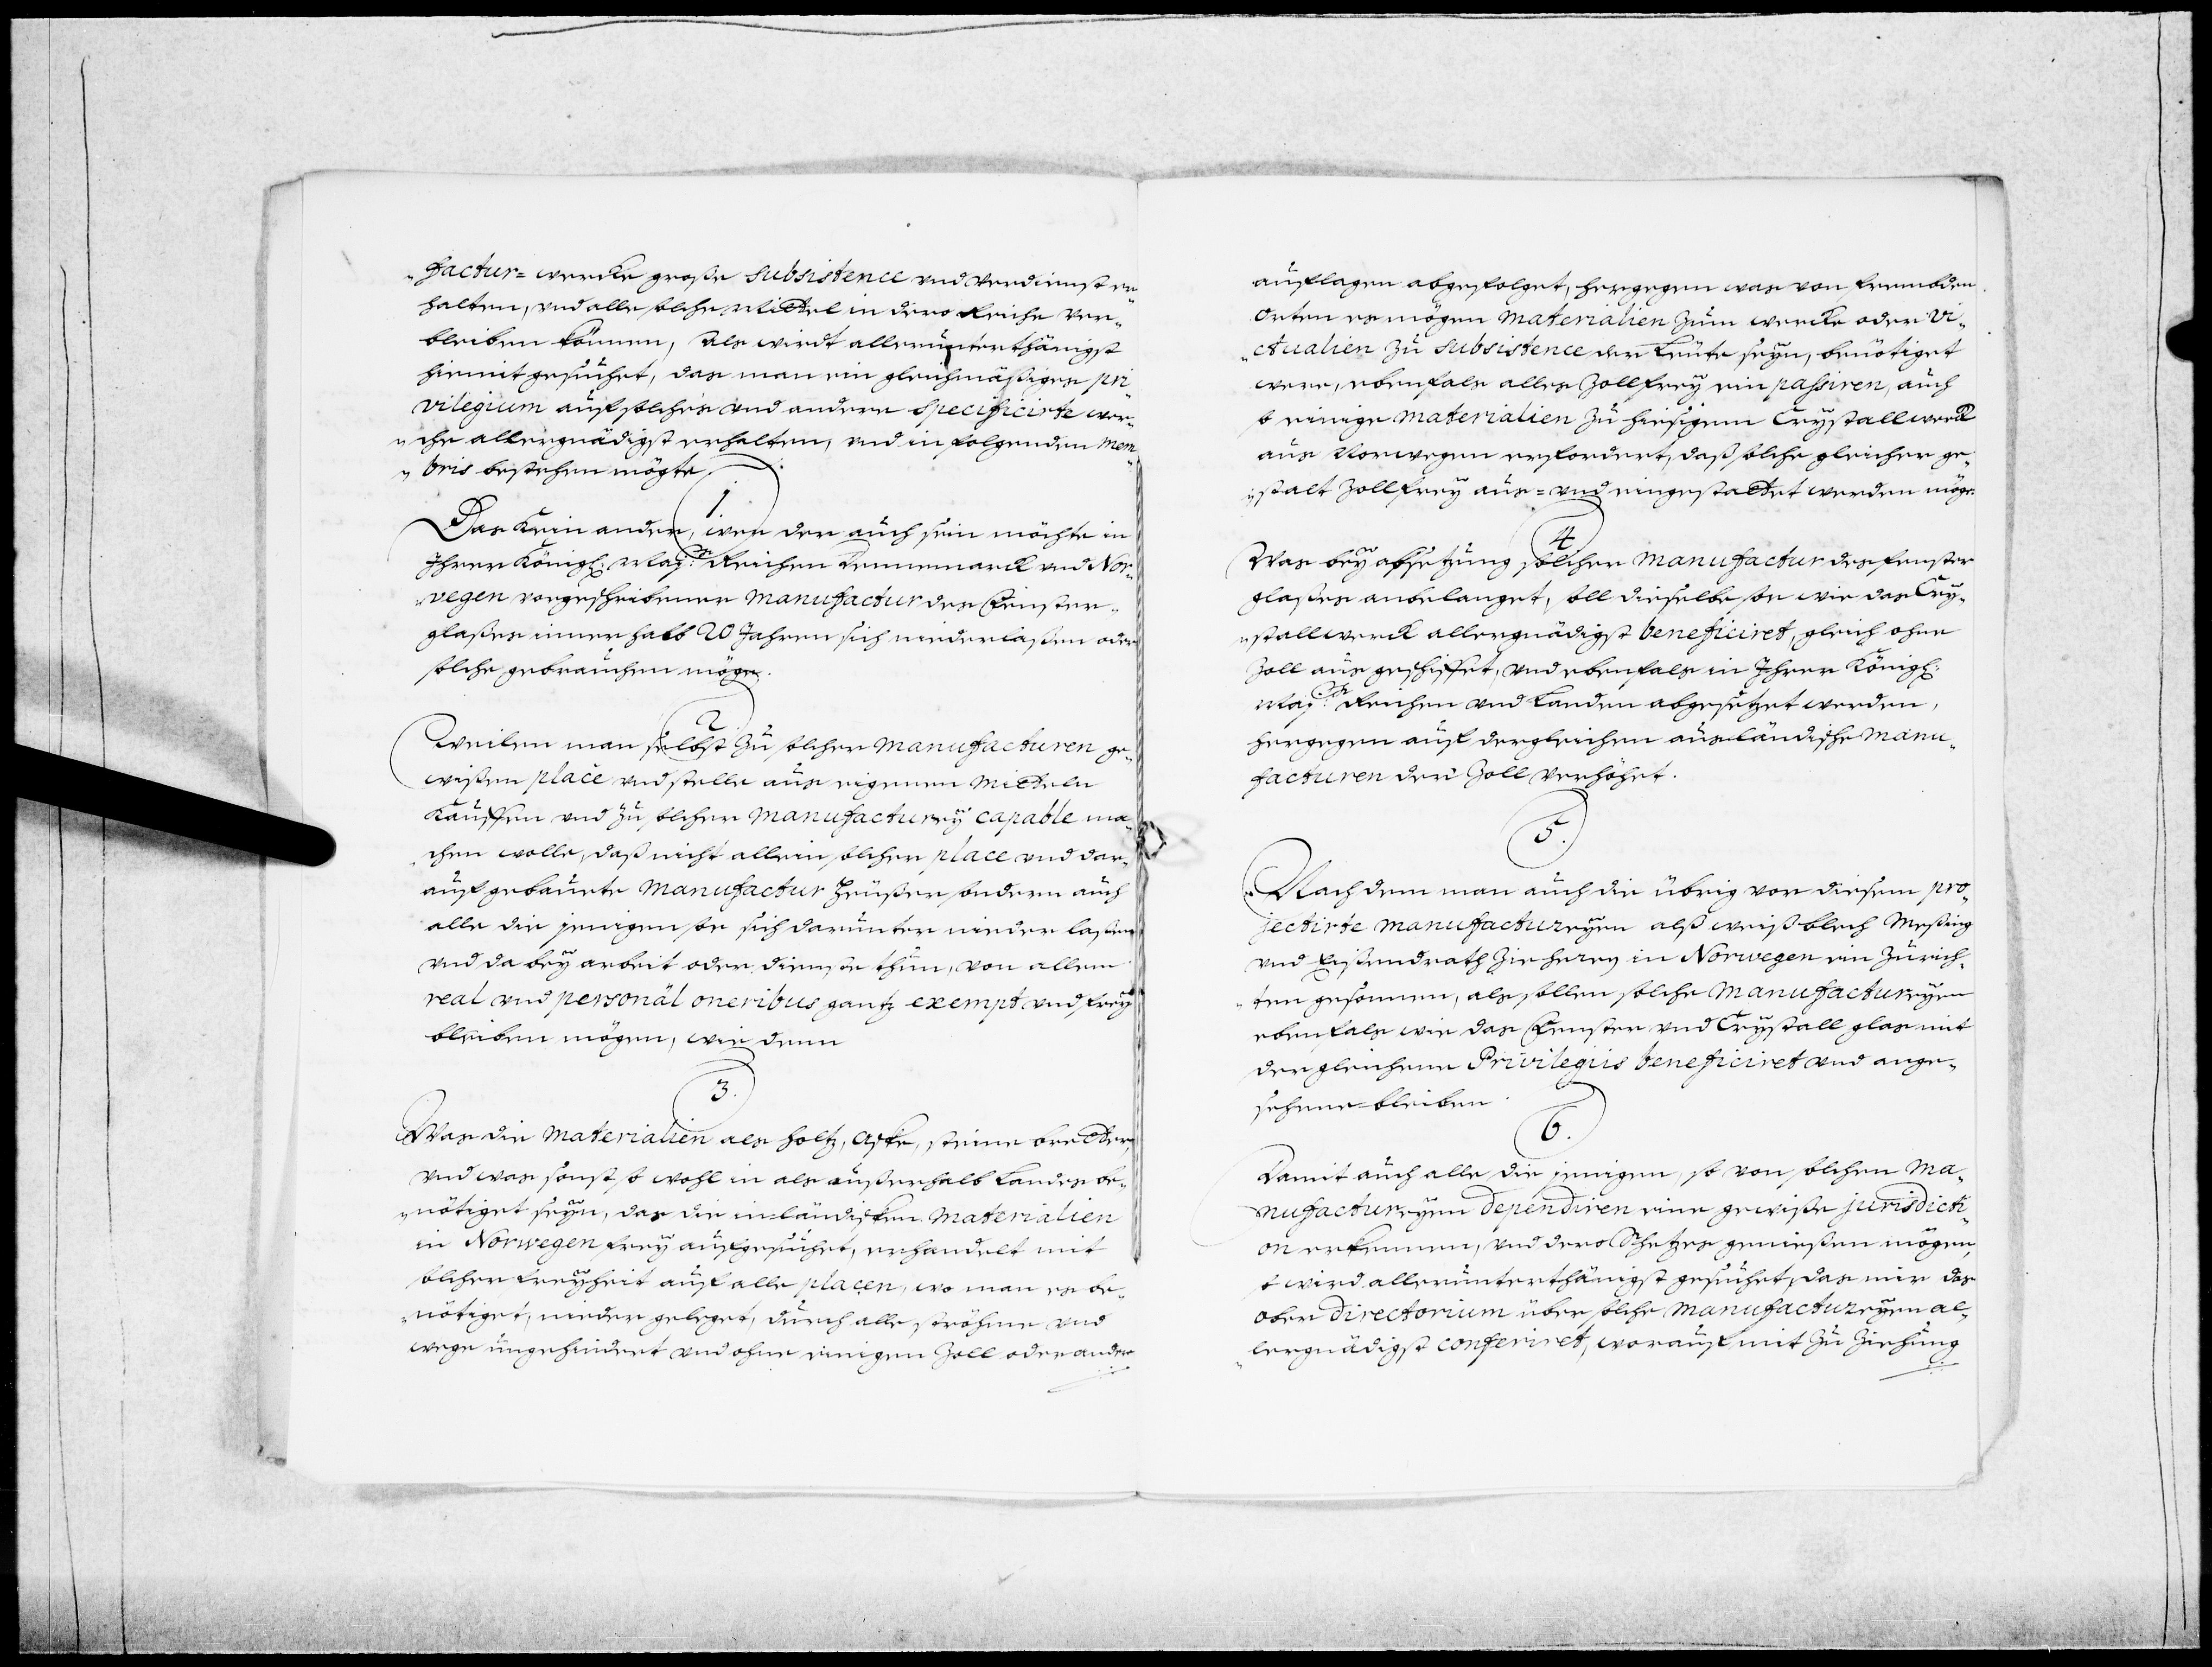 factur= wercke große subsistence und verdienst er¬
halten, und alle solche Mittel in dero Reiche ver¬
bleiben können, Als wirdt allerunterthänigst
hiemit gesuchet, das man ein gleichmäßiges pri
vilegium auf solches und andere specificirte wer¬
cke allergnädigst erhalten, und in folgenden mem
bris bestehen mögte.
1.
Das kein ander, wer der auch sein möchte in
Ihrer Königl: Maj:tt Reichen Dennemarck und Nor¬
vegen vorgeschriebener Manufactur des Fenster¬
glaßes innerhalb 20 Jahren sich niederlaßen oder
solche gebrauchen möge.
2.
Weilen man selbst zu solcher manufacturen ge¬
wißen place und stelle aus eigenen Mitteln
kauffen und zu solcher manufacturey capable ma
chen wolle, daß nicht allein solcher place und dar¬
auf gebauete Manufactur heußer sondern auch
alle die jenigen so sich darunter nieder laßen
und da bey arbeit oder dienste thun, von allem
real und personal oneribus gantz exempt und frey
bleiben mögen, wie denn
3.
Was die Materialien als holtz, aske, steine bretter
und was sonst so wohl in als außerhalb Landes be¬
nötiget seyn, das die inländischen Materialien
in Norwegen frey aufgesuchet, erhandelt mit
solcher freyheit auf alle placen, wo man es be¬
nötiget, nieder geleget, durch alle ströhme und
wege ungehindert und ohne einigen Zoll oder ander
auflagen abgefolget, hergegen was von frembden
orten es mögen Materialien zum wercke oder Vi¬
ctualien zu subsistence der Leute seyn, benötiget
were, ebenfals alles Zollfrey ein passiren, auch
so einige Materialien zu hiesigem Crystallwerck
aus Norwegen erfordert, daß solche gleicher ge¬
stalt Zollfrey aus= und eingestattet werden möge.
4
Was bey absetzung solcher Manufactur des fenster
glaßes anbelanget, soll dieselbe so wie das Cry¬
stallwerck allergnädigst beneficiret, gleich ohne
Zoll aus geschiffet, und ebenfals in Ihrer Königl:
Maj:tt Reichen und Landen abgesetzet werden,
hergegen auf dergleichen ausländische Manu¬
facturen der Zoll verhöhet.
5.
Nach dem man auch die übrig vor diesem pro¬
jectirte Manufactureyen alß weiß blech Meßing
und Eißendrath Zieherey in Norwegen ein zurich¬
ten gesonnen, als sollen solche Manufactureyen
ebenfals wie das Fenster und Crystall glas mit
der gleichene Privilegiis beneficiret und ange¬
sehene bleiben.
6.
Damit auch alle die jenigen, so von solchen Ma¬
nufactureyen dependiren eine gewiße jurisdicti
on erkennen, und dero Schutzes genießen mögen,
so wird allerunterthänigst gesuchet, das mir das
ober Directorium über solche Manufactureyen al¬
lergnädigst conferiret, worauf mit zu ziehung